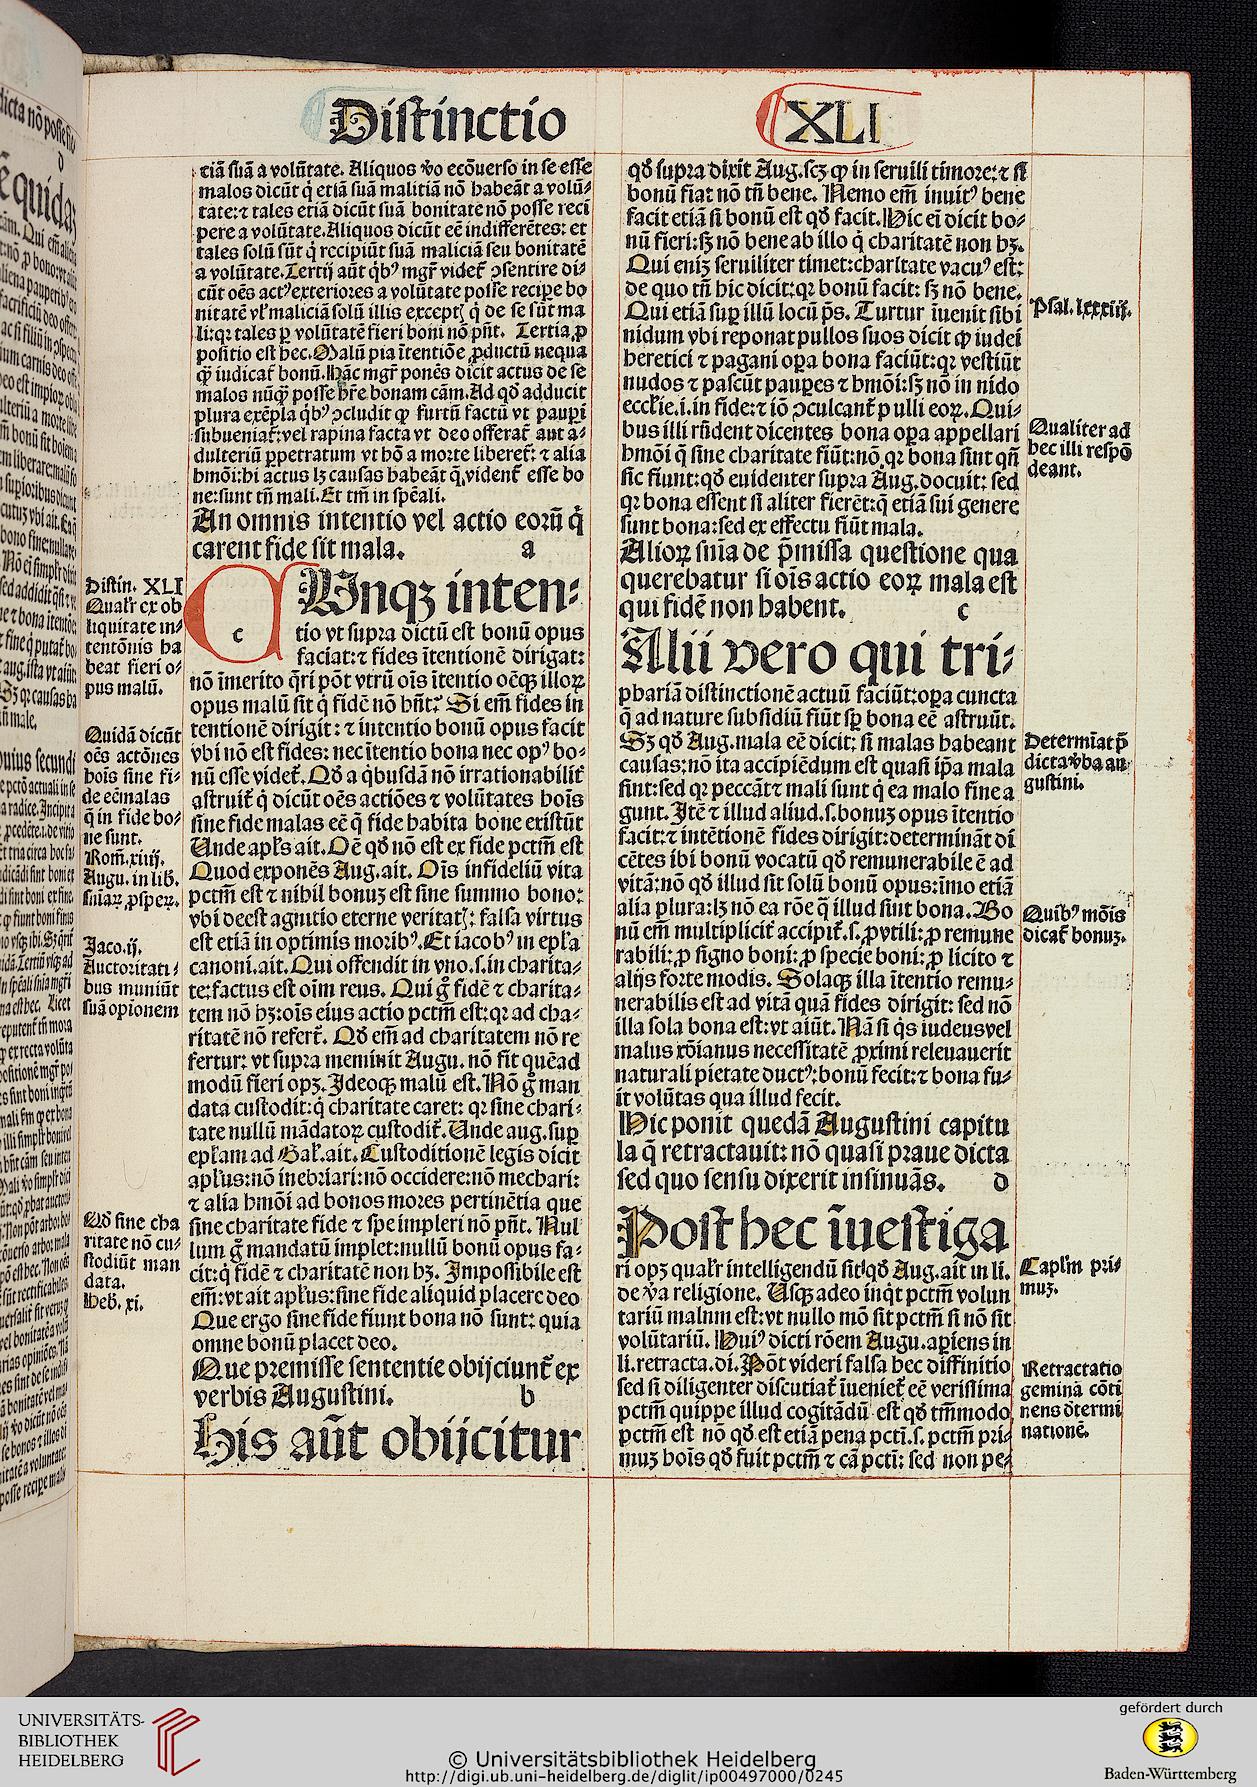 Distinctio
XLI
ciā suā a volūtate. Aliquos v̓o ecōuerso in se esse
malos dicūt q̇ etiā suā malitiā nō habeāt a volū-
tate: ⁊ tales etiā dicūt suā bonitatē nō posse reci
pere a volūtate. Aliquos dicūt eē indifferētes: et
tales solū sūt q̇ recipiūt suā maliciā seu bonitatē
a volūtate. Tertij aūt q̇bꝰ mgr̄ videt̄ ɔsentire di-
cūt oēs actꝰ exteriores a volūtate posse recipe bo
nitatē vl̓ maliciā solū illis exceptꝭ q̇ de se sūt ma
li: qꝛ tales ꝑ volūtatē fieri boni nō pn̄t. Tertia ꝓ
positio est hec. Malū pia ītentiōe ꝓductū nequa
ꝙ̄ iudicat̄ bonū. Hāc mgr̄ ponēs dicit actus de se
malos nūꝙ̄ posse hr̄e bonam cām. Ad qd̓ adducit
plura exēpla q̇bꝰ ɔcludit ꝙ furtū factū vt pauꝑi
subueniat̄: vel rapina facta vt deo offerat̄ aut a-
dulteriū ꝑpetratum vt hō a morte liberet̄: ⁊ alia
hmōi: hi actus lꝫ causas habeāt q̄ vident̄ esse bo
ne: sunt tn̄ mali. Et tm̄ in sp̄eali.
An omnis intentio vel actio eorū q̇
carent fide sit mala. a
c
Vnqꝫ inten-
tio vt supra dictū est bonū opus
faciat: ⁊ fides ītentionē dirigat:
nō īmerito q̄ri pōt vtrū oīs ītentio oēqꝫ illoꝝ
opus malū sit q̇ fidē nō hn̄t. Si em̄ fides in
tentionē dirigit: ⁊ intentio bonū opus facit
vbi nō est fides: nec ītentio bona nec opꝰ bo-
nū esse videt̄. Qd̓ a q̇busdā nō irrationabilit̄
astruit̄ q̇ dicūt oēs actiōes ⁊ volūtates hoīs
sine fide malas eē q̄ fide habita bone existūt
Unde apl̓s ait. Oē qd̓ nō est ex fide pctm̄ est
Quod exponēs Aug. ait. Oīs infideliū vita
pctm̄ est ⁊ nihil bonuꝫ est sine summo bono:
vbi deest agnitio eterne veritatꝭ: falsa virtus
est etiā in optimis moribꝰ. Et iacobꝰ in epl̓a
canoni. ait. Qui offendit in vno. s. in charita-
te: factus est oīm reus. Qui g̊ fidē ⁊ charita-
tem nō hꝫ: oīs eius actio pctm̄ est: qꝛ ad cha-
ritatē nō refert̄. Qd̓ em̄ ad charitatem nō re
fertur: vt supra meminit Augu. nō fit quēad
modū fieri opꝫ. Ideoqꝫ malū est. Nō g̊ man
data custodit: q̇ charitate caret: qꝛ sine chari-
tate nullū mādatoꝝ custodit̄. Unde aug. suꝑ
epl̓am ad Gal̓. ait. Custoditionē legis dicit
apl̓us: nō inebriari: nō occidere: nō mechari:
⁊ alia hmōi ad bonos mores pertinētia que
sine charitate fide ⁊ spe impleri nō pn̄t. Nul
lum g̊ mandatū implet: nullū bonū opus fa-
cit: q̇ fidē ⁊ charitatē non hꝫ. Impossibile est
em̄: vt ait apl̓us: sine fide aliquid placere deo
Que ergo sine fide fiunt bona nō sunt: quia
omne bonū placet deo.
Que premisse sententie obijciunt̄ ex
verbis Augustini. b
His aūt obijcitur
Distin. XLI
Qual̓r ex ob
liquitate in-
tentōnis ha
beat fieri o-
pus malū.
Quidā dicūt
oēs actōnes
hoīs sine fi-
de eē malas
q̄ in fide bo-
ne sunt.
Rom̄. xiiij.
Augu. in lib̓.
sn̄iaꝝ ꝓspeꝝ.
Jaco. ij.
Auctoritati-
bus muniūt
suā opionem
Qd̓ sine cha
ritate nō cu-
stodiūt man
data.
Heb̓. xi.
qd̓ supra dixit Aug. scꝫ ꝙ in seruili timore: ⁊ si
bonū fiat nō tn̄ bene. Nemo em̄ inuitꝰ bene
facit etiā si bonū est qd̓ facit. Hic ei dicit bo-
nū fieri: sꝫ nō bene ab illo q̇ charitatē non hꝫ.
Qui eniꝫ seruiliter timet: charitate vacuꝰ est:
de quo tn̄ hic dicit: qꝛ bonū facit: sꝫ nō bene.
Qui etiā suꝑ illū locū p̄s. Turtur iuenit sibi
nidum vbi reponat pullos suos dicit ꝙ iudei
heretici ⁊ pagani oꝑa bona faciūt: qꝛ vestiūt
nudos ⁊ pascūt pauꝑes ⁊ hmōi: sꝫ nō in nido
eccl̓ie. i. in fide: ⁊ iō ɔculcant̄ pulli eoꝝ. Qui-
bus illi rn̄dent dicentes bona oꝑa appellari
hmōi q̄ sine charitate fiūt: nō qꝛ bona sint qn̄
sic fiunt: qd̓ euidenter supra Aug. docuit: sed
qꝛ bona essent si aliter fierēt: q̄ etiā sui genere
sunt bona: sed ex effectu fiūt mala.
Alioꝝ sn̄ia de p̄missa questione qua
querebatur si oīs actio eoꝝ mala est
qui fidē non habent. c
Alii vero qui tri-
phariā distinctionē actuū faciūt: oꝑa cuncta
q̄ ad nature subsidiū fiūt sꝑ bona eē astruūt.
Sꝫ qd̓ Aug. mala eē dicit: si malas habeant
causas: nō ita accipiēdum est quasi ip̄a mala
sint: sed qꝛ peccāt ⁊ mali sunt q̇ ea malo fine a
gunt. Itē ⁊ illud aliud. s. bonuꝫ opus ītentio
facit: ⁊ intētionē fides dirigit: determināt di
cētes ibi bonū vocatū qd̓ remunerabile ē ad
vitā: nō qd̓ illud sit solū bonū opus: imo etiā
alia plura: lꝫ nō ea rōe q̄ illud sint bona. Bo
nū em̄ multiplicit̄ accipit̄. s. ꝓ vtili: ꝓ remune
rabili: ꝓ signo boni: ꝓ specie boni: ꝓ licito ⁊
alijs forte modis. Solaqꝫ illa ītentio remu-
nerabilis est ad vitā quā fides dirigit: sed nō
illa sola bona est: vt aiūt. Nā si q̇s iudeus vel
malus xp̄ianus necessitatē ꝓximi releuauerit
naturali pietate ductꝰ: bonū fecit: ⁊ bona fu-
it volūtas qua illud fecit.
Hic ponit quedā Augustini capitu
la q̄ retractauit: nō quasi praue dicta
sed quo sensu dixerit insinuās. d
Post hec īuestiga
ri opꝫ qual̓r intelligendū sit qd̓ Aug. ait in li.
de v̓a religione. Usqꝫ adeo inq̇t pctm̄ volun
tariū malum est: vt nullo mō sit pctm̄ si nō sit
volūtariū. Huiꝰ dicti rōem Augu. aꝑiens in
li. retracta. di. Pōt videri falsa hec diffinitio
sed si diligenter discutiat̄ īueniet̄ eē verissima
pctm̄ quippe illud cogitādū est qd̓ tm̄modo
pctm̄ est nō qd̓ est etiā pena pcti. s. pctm̄ pri-
muꝫ hoīs qd̓ fuit pctm̄ ⁊ cā pcti: sed non pe-
Psal. lxxxiij.
Qualiter ad
hec illi respō
deant.
Determīat p̄
dicta v̓ba au
gustini.
Quibꝰ mōis
dicat̄ bonuꝫ.
Capl̓m pri-
muꝫ.
Retractatio
geminā cōti
nens d̓termi
nationē.
UNIVERSITÄTS-
BIBLIOTHEK
HEIDELBERG
© Universitätsbibliothek Heidelberg
http://digi.ub.uni-heidelberg.de/diglit/ip00497000/0245
gefördert durch
Baden-Württemberg